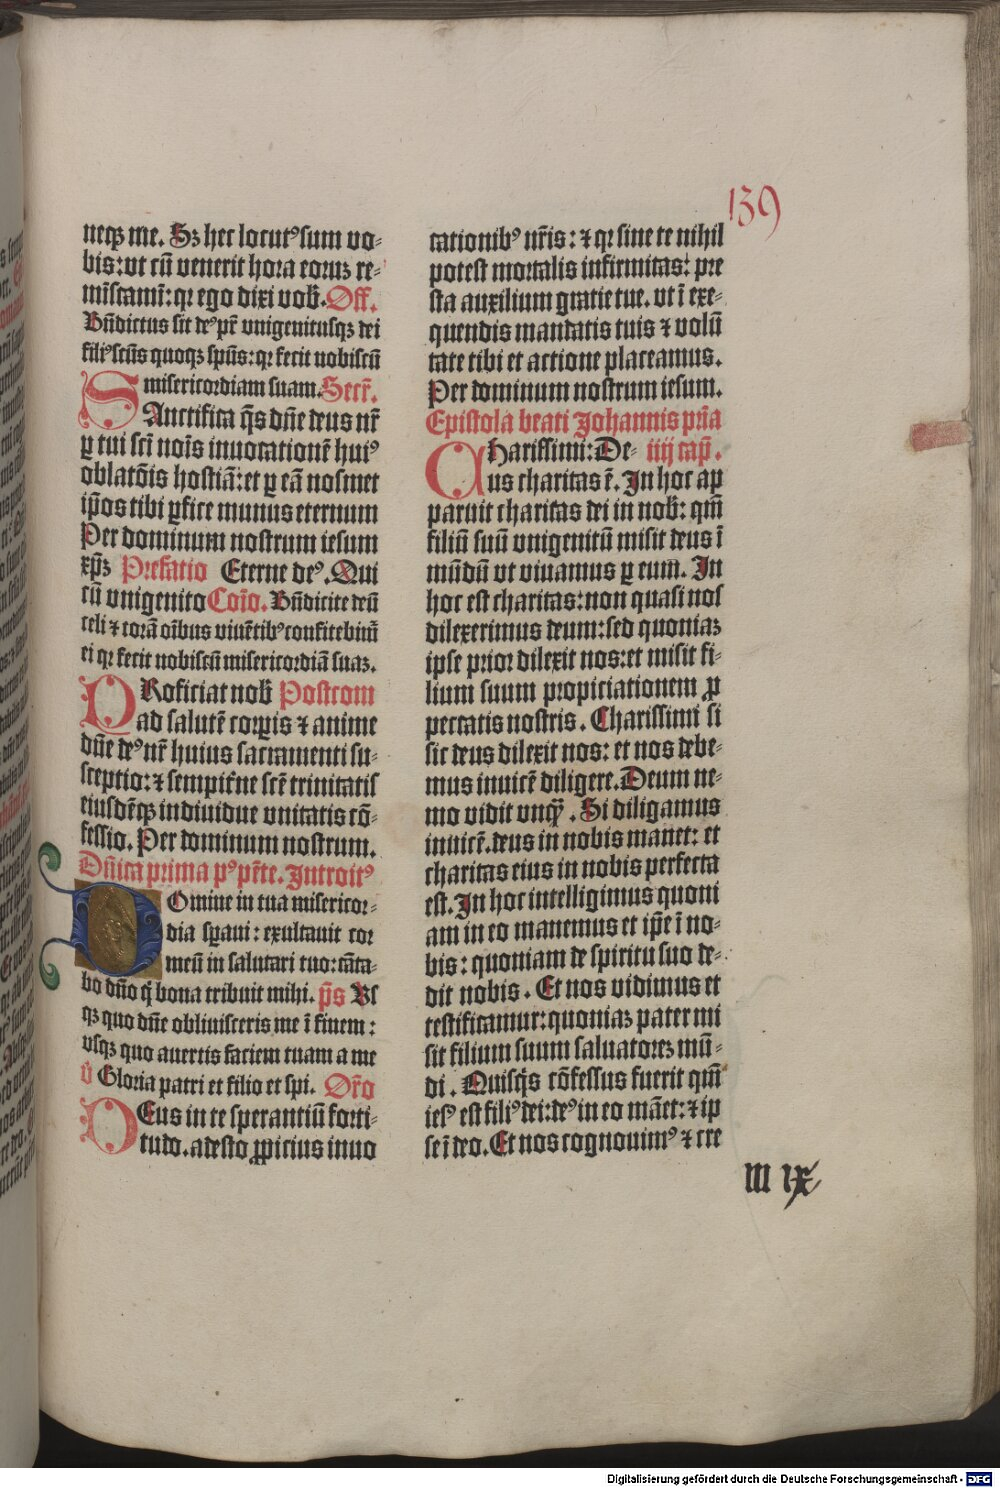 139
neqꝫ me. Sꝫ hec locutꝰ sum vo⸗
bis: vt cū venerit hora eoruꝫ re⸗
miscamī: qꝛ ego dixi vob̄. Off.
Bn̄dictus sit deꝰ pr̄ vnigenitusqꝫ dei
filiꝰ scūs quoqꝫ spūs: qꝛ fecit nobiscū
misericordiam suam. Secr̄.
SAnctifica q̄s dn̄e deus nr̄
ꝑ tui sct̄i nōis inuocationē huiꝰ
oblatōis hostiā: et ꝑ eā nosmet
ip̄os tibi ꝑfice munus eternum
Per dominum nostrum iesum
xp̄ꝫ Prefatio Eterne deꝰ. Qui
cū vnigenito Cōio. Bn̄dicite deū
celi ⁊ corā oībus viuētibꝰ confitebimī
ei qꝛ fecit nobiscū misericordiā suaꝫ.
PRoficiat nob̄ Postcom
ad salutē corꝑis ⁊ anime
dn̄e deꝰ nr̄ huius sacramenti su⸗
sceptio: ⁊ sempitn̄e scē trinitatis
eiusdēqꝫ indiuidue vnitatis cō⸗
fessio. Per dominum nostrum.
Dn̄ica prima pꝰ pēte. Introitꝰ
DOmine in tua misericor⸗
dia sꝑaui: exultauit cor
meū in salutari tuo: cāta⸗
bo dn̄o q̄ bona tribuit mihi. p̄s Vs
qꝫ quo dn̄e obliuisceris me ī finem:
vsqꝫ quo auertis faciem tuam a me
v̄ Gloria patri et filio et spi. Or̄o
DEus in te sperantiū forti⸗
tudo. adesto ꝓpicius inuo
cationibꝰ nr̄is: ⁊ qꝛ sine te nihil
potest mortalis infirmitas: pre
sta auxilium gratie tue. vt ī exe⸗
quendis mandatis tuis ⁊ volū
tate tibi et actione placeamus.
Per dominum nostrum iesum.
Epistola beati Johannis pr̄ia
CHarissimi: De⸗ iiij cap̄.
us charitas ē. In hoc ap
paruit charitas dei in nob̄: qm̄
filiū suū vnigenitū misit deus ī
mūdū vt viuamus ꝑ eum. In
hoc est charitas: non quasi nos
dilexerimus deum: sed quoniaꝫ
ipse prior dilexit nos: et misit fi⸗
lium suum propiciationem ꝓ
peccatis nostris. Charissimi si
sic deus dilexit nos: et nos debe⸗
mus inuicē diligere. Deum ne⸗
mo vidit vnq̄ꝫ. Si diligamus
inuicē. deus in nobis manet: et
charitas eius in nobis perfecta
est. In hoc intelligimus quoni
am in eo manemus et ip̄e ī no⸗
bis: quoniam de spiritu suo de⸗
dit nobis. Et nos vidimus et
testificamur: quoniaꝫ pater mi
sit filium suum saluatoreꝫ mū⸗
di. Quisq̄s cōfessus fuerit qm̄
iesꝰ est filiꝰ dei: deꝰ in eo māet: ⁊ ip
se ī deo. Et nos cognouimꝰ ⁊ cre
Digitalisierung gefördert durch die Deutsche Forschungsgemeinschaft - DFG